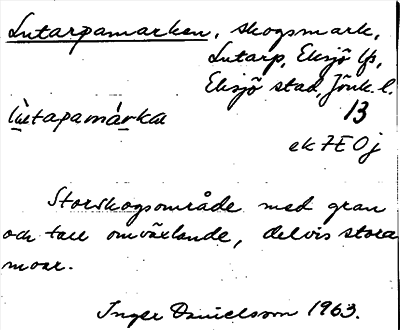 Lutarpamarken, skogsmark,
Lutarp, Eksjö lfs,
Eksjö stad, Jönk. l.
13
lùtapamárka
ek 7E0j
Storskogsområde med gran
och tall omväxlande, delvis stora
moar.
Inger Danielsson 1963.